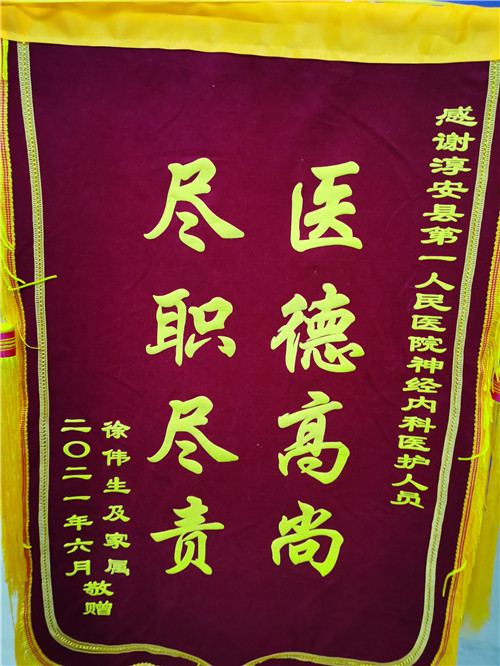 感谢淳安县第一人民医院神经内科医护人员
医德高尚
尽职尽责
徐伟生及家属
二〇二一年六月
敬赠